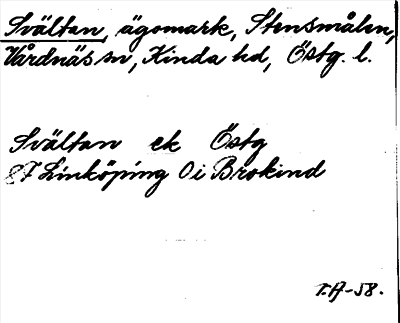 Svältan, ägomark, Stensmålen,
Vårdnäs sn, Kinda hd, Östg. l.
Svältan ek Östg
87 Linköping O i Brokind
T.A-58.